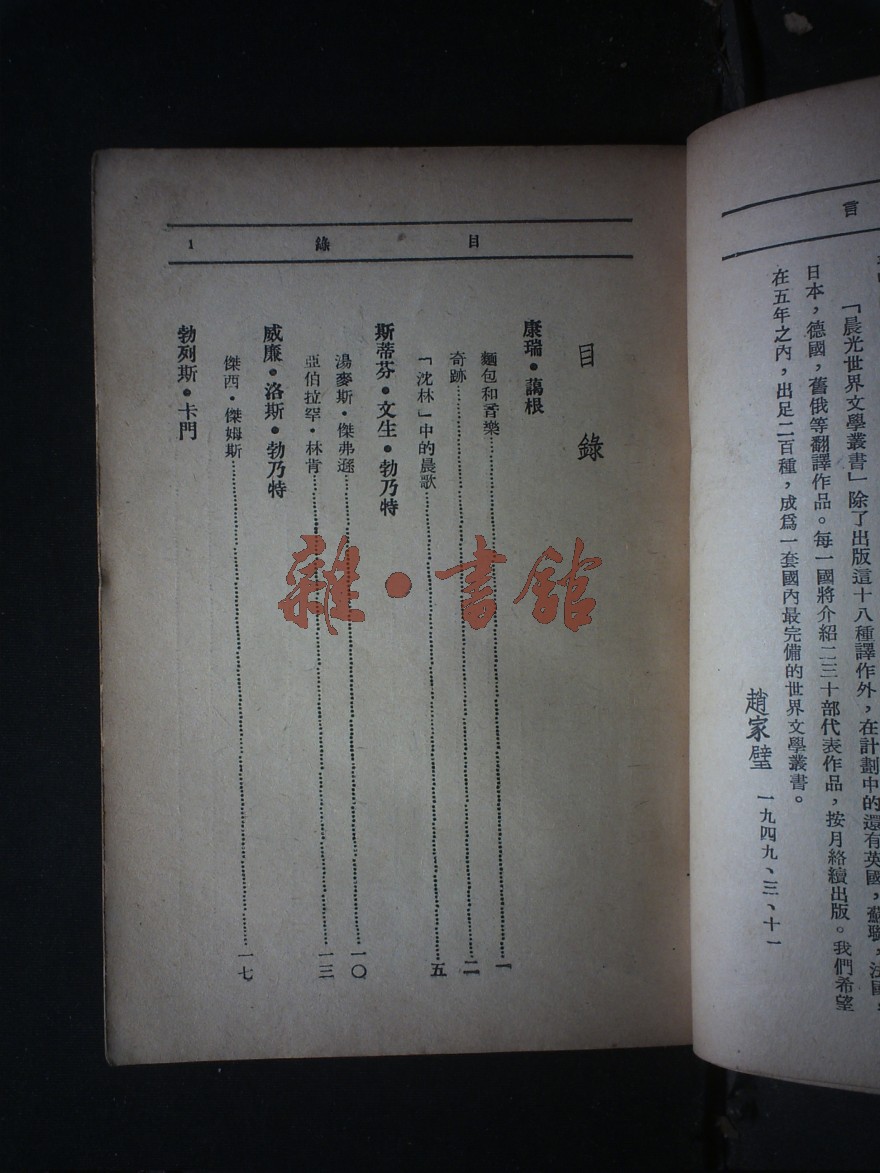 言
「晨光世界文學叢書」除了出版這十八種譯作外，在計劃中的還有英國，蘇聯，法國，
日本，德國，舊俄等翻譯作品。每一國將介紹二三十部代表作品，按月絡續出版。我們希望
在五年之內，出足二百種，成爲一套國內最完備的世界文學叢書。
趙家璧 一九四九、三、十一
目錄 1
目錄
康瑞•藹根
麵包和音樂……一
奇跡……二
「沈林」中的晨歌……五
斯蒂芬•文生•勃乃特
湯麥斯•傑弗遜……一〇
亞伯拉罕•林肯……一三
威廉•洛斯•勃乃特
傑西•傑姆斯……一七
勃列斯•卡門
雜•書館